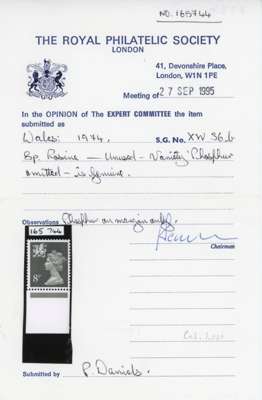 NO. 165744
THE ROYAL PHILATELIC SOCIETY
LONDON
41, Devonshire Place,
London, W1N 1PE
Meeting of 27 SEP 1995
In the OPINION of The EXPERT COMMITTEE the item
submitted as
Wales: 1974. S.G. No. XW 36b
8p Rosine — Unused - Variety Phosphor
omitted - is genuine.
Observations Phosphor on margin only.
Chairman
165 744
8P
Submitted by P. Daniels.